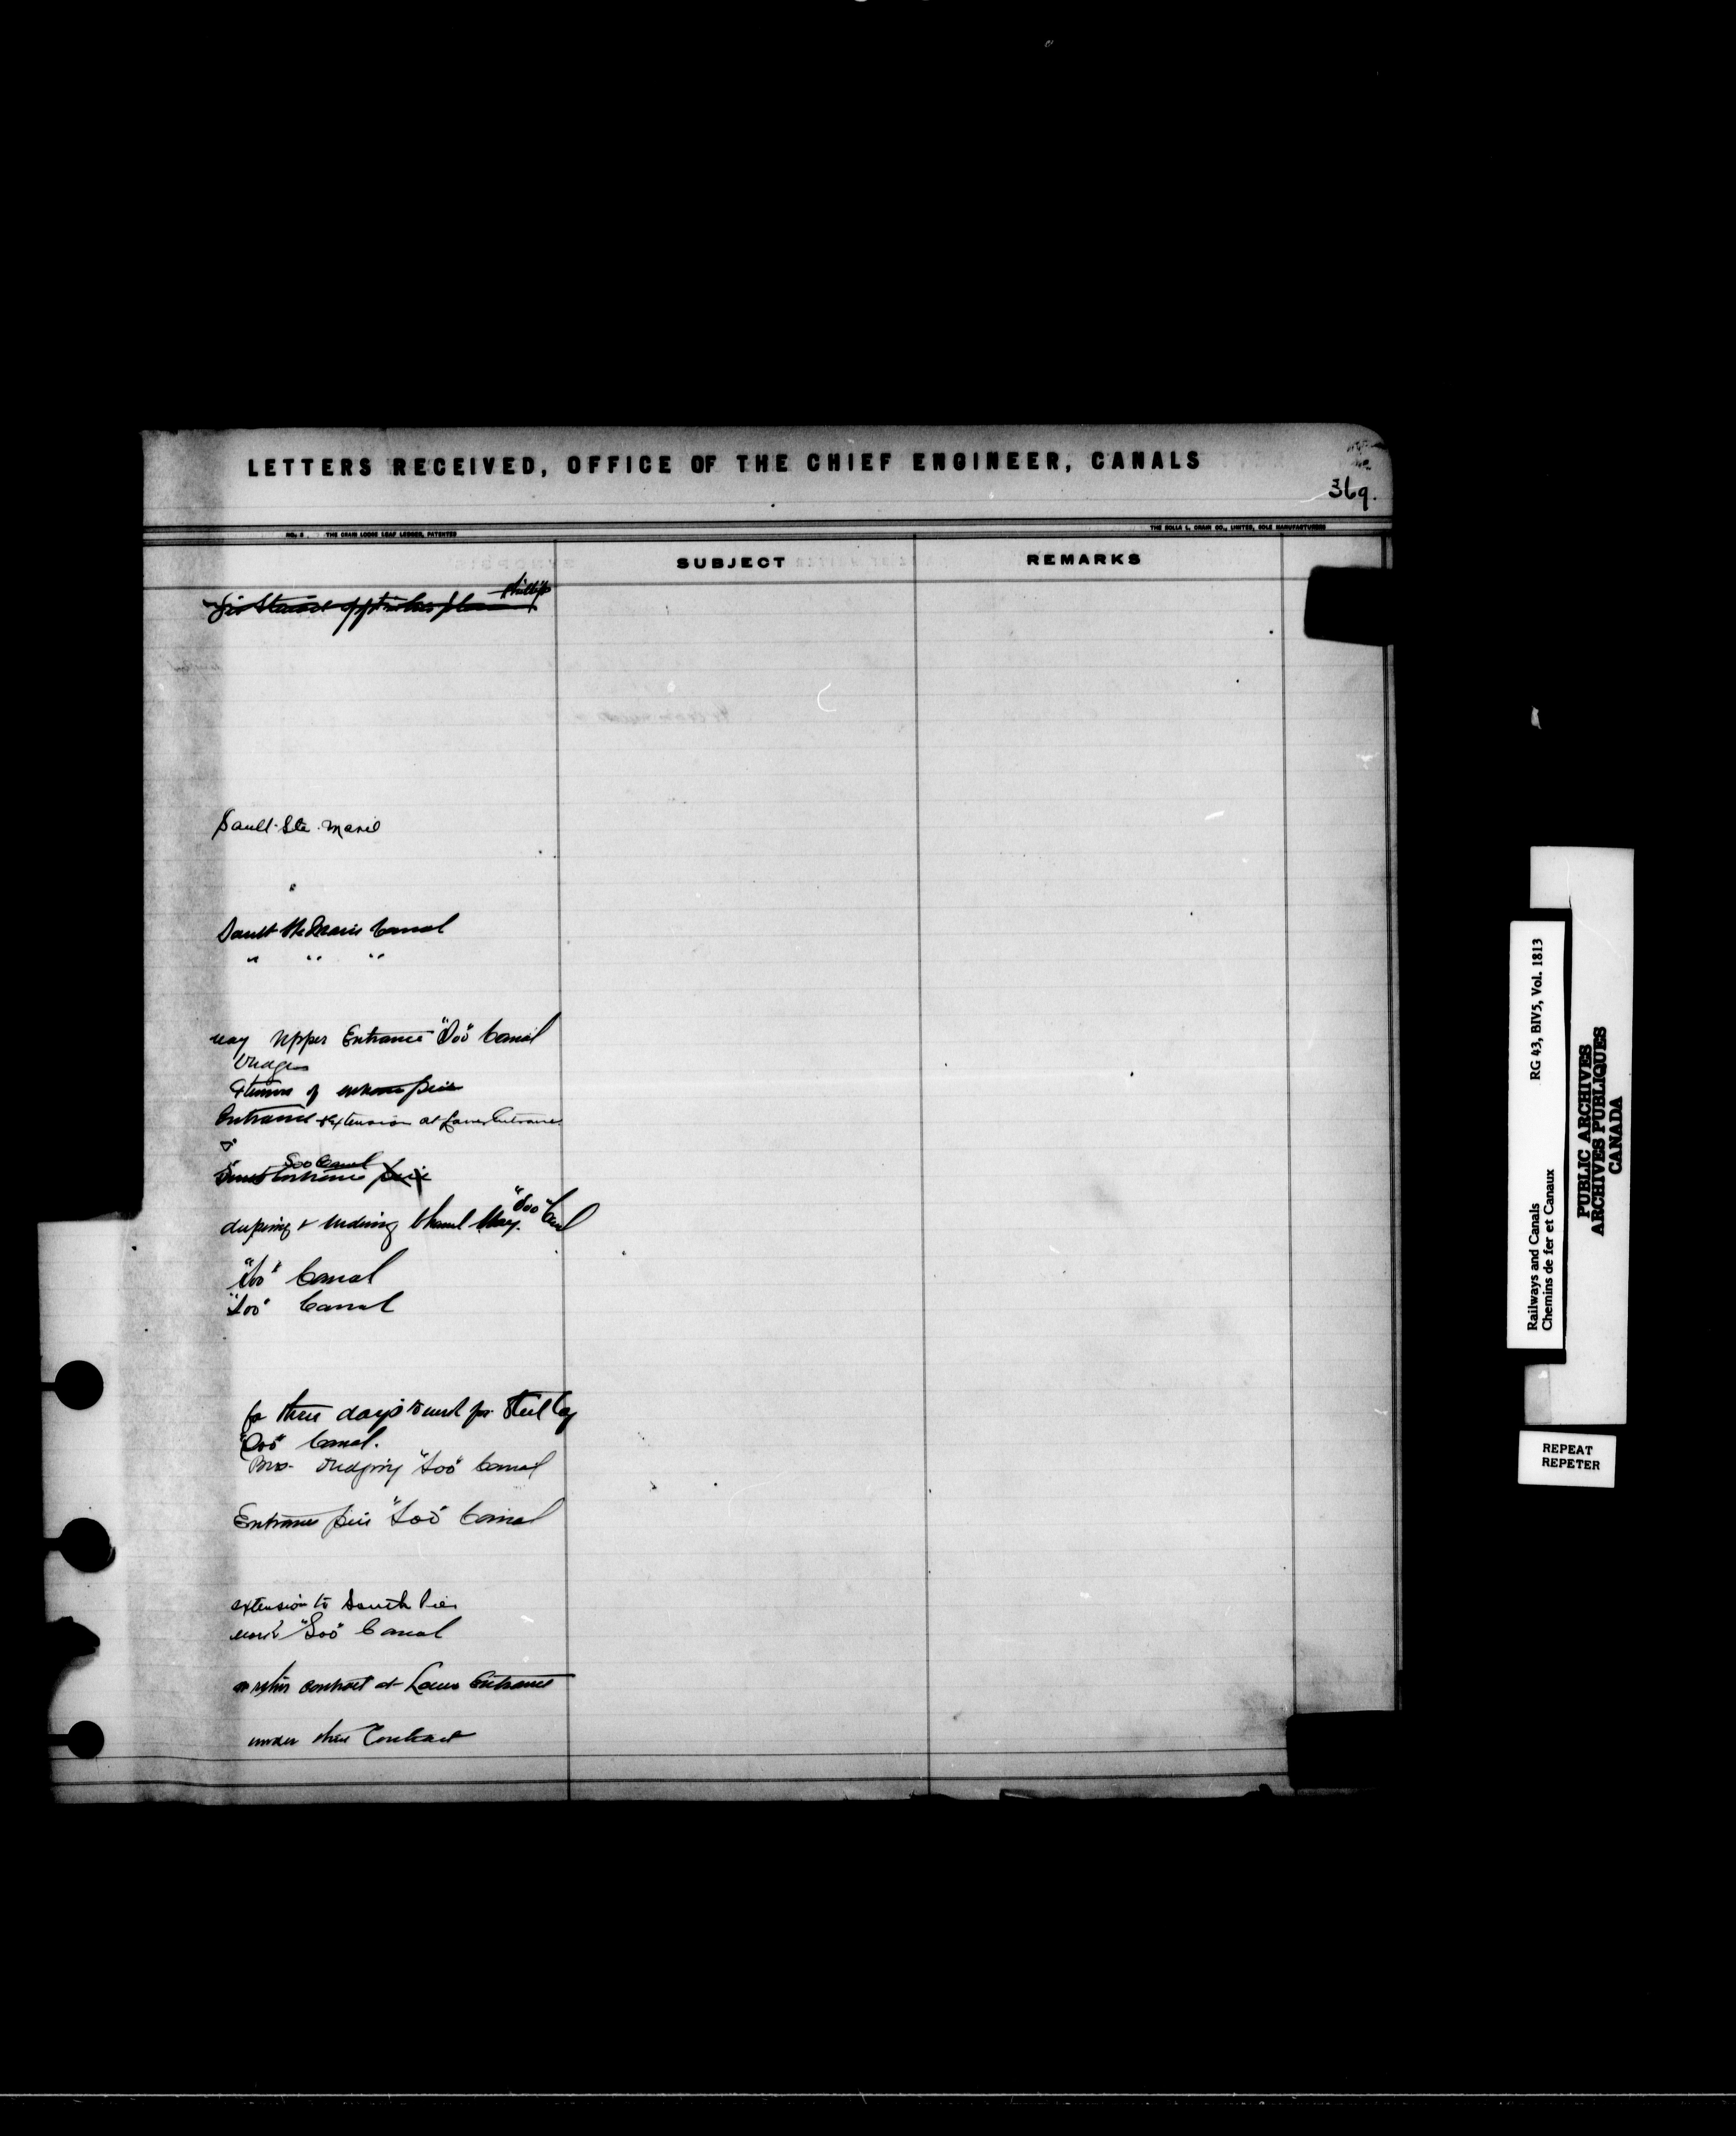 LETTERS RECEIVED, OFFICE OF THE CHIEF ENGINEER, CANALS
369.
NO. 8 THE CRAIN LOOSE LEAF LEDGER, PATENTED
THE ROLLA L. CRAIN CO., LIMITED, SOLE MANUFACTURERS
SUBJECT
REMARKS
Phillips
Sault Ste. Marie
"
Sault Ste Marie Canal
" " "
way Upper Entrance "Soo" Canal
bridges
of entrance pier
Entrance extension at Lower Entrance
Soo Canal
entrance pier
& channel way. "Soo" Canal
"Soo" Canal
"Soo" Canal
for three days work for Steel Coy
"Soo" Canal.
Bros. dredging "Soo" Canal
Entrance pier "Soo" Canal
extension to South Pier
work "Soo" Canal
contract at Lower Entrance
under their Contract
RG 43, BIV5, Vol. 1813
Railways and Canals
Chemins de fer et Canaux
PUBLIC ARCHIVES
ARCHIVES PUBLIQUES
CANADA
REPEAT
REPETER